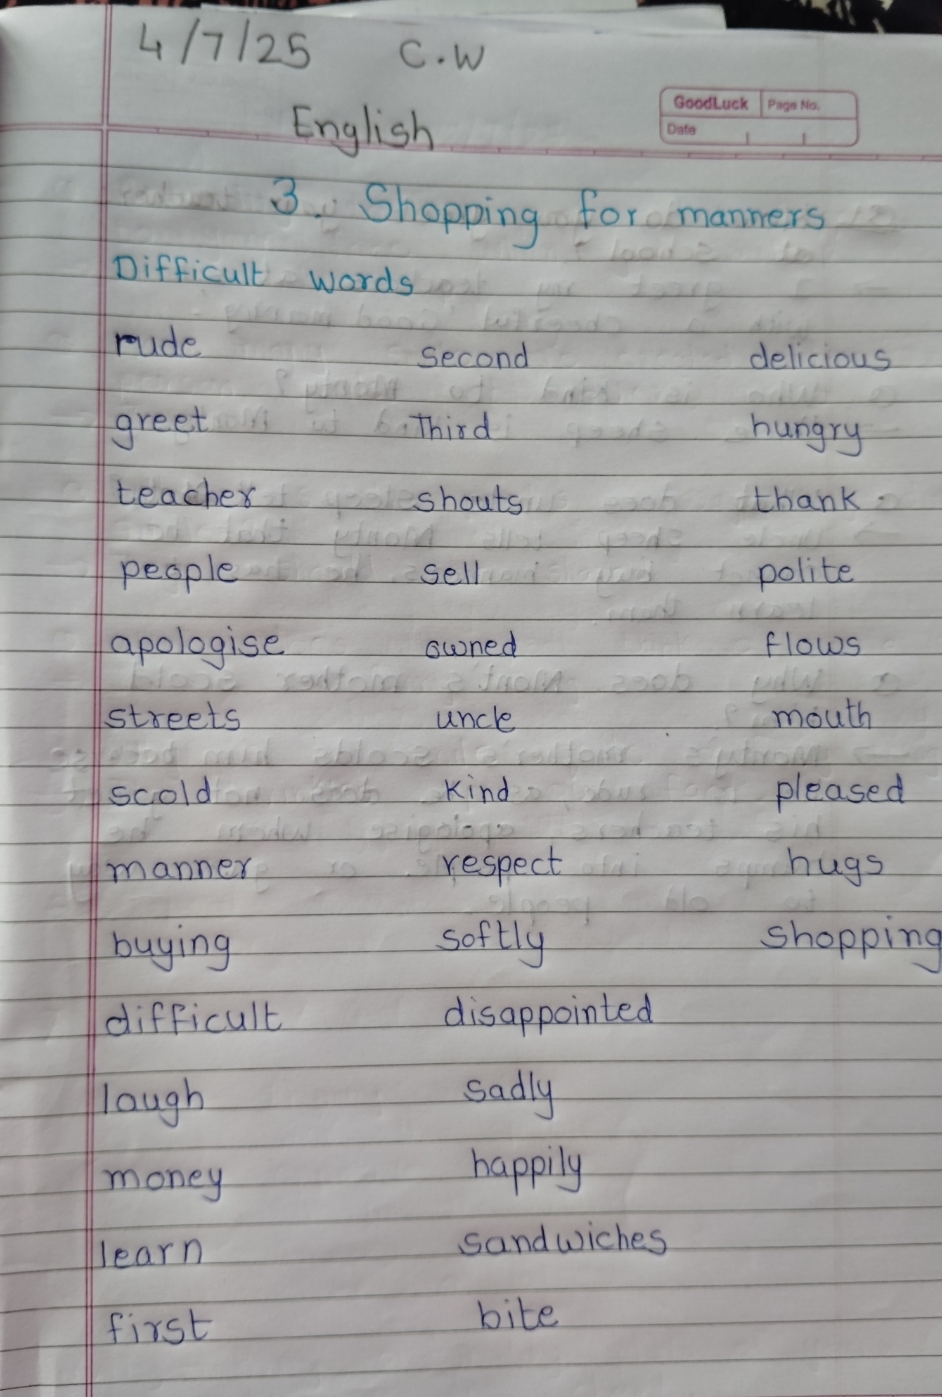 4/7/25 C.W
GoodLuck Page No.
Date
English
3. Shopping for manners
Difficult words
rude second delicious
greet Third hungry
teacher shouts thank
people sell polite
apologise owned flows
streets uncle mouth
scold kind pleased
manner respect hugs
buying softly shopping
difficult disappointed
laugh sadly
money happily
learn sandwiches
first bite